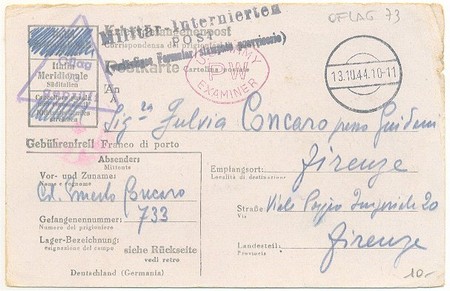 OFLAG 73
Militär-Internierten
POST
Kriegsgefangenenpost
Corrispondenza dei prigionieri
(vorläufiges Formular, stampato provvisorio)
Postkarte
Cartolina postale
Italia
Meridionale
Süditalien
Geprüft
U.S. ARMY
PW
EXAMINER
13.10.44.10-11
An
A
Sig.ra Fulvia Concaro presso
Firenze
Gebührenfrei! Franco di porto
Absender:
Mittente
Vor- und Zuname:
Nome e cognome
Ernesto Concaro
Gefangenennummer:
Numero del prigioniero
733
Lager-Bezeichnung:
designazione del campo
siehe Rückseite
vedi retro
Deutschland (Germania)
Empfangsort:
Località di destinazione
Straße:
Via
Viale Poggio Imperiale 20
Landesteil:
Provincia
Firenze
10.-